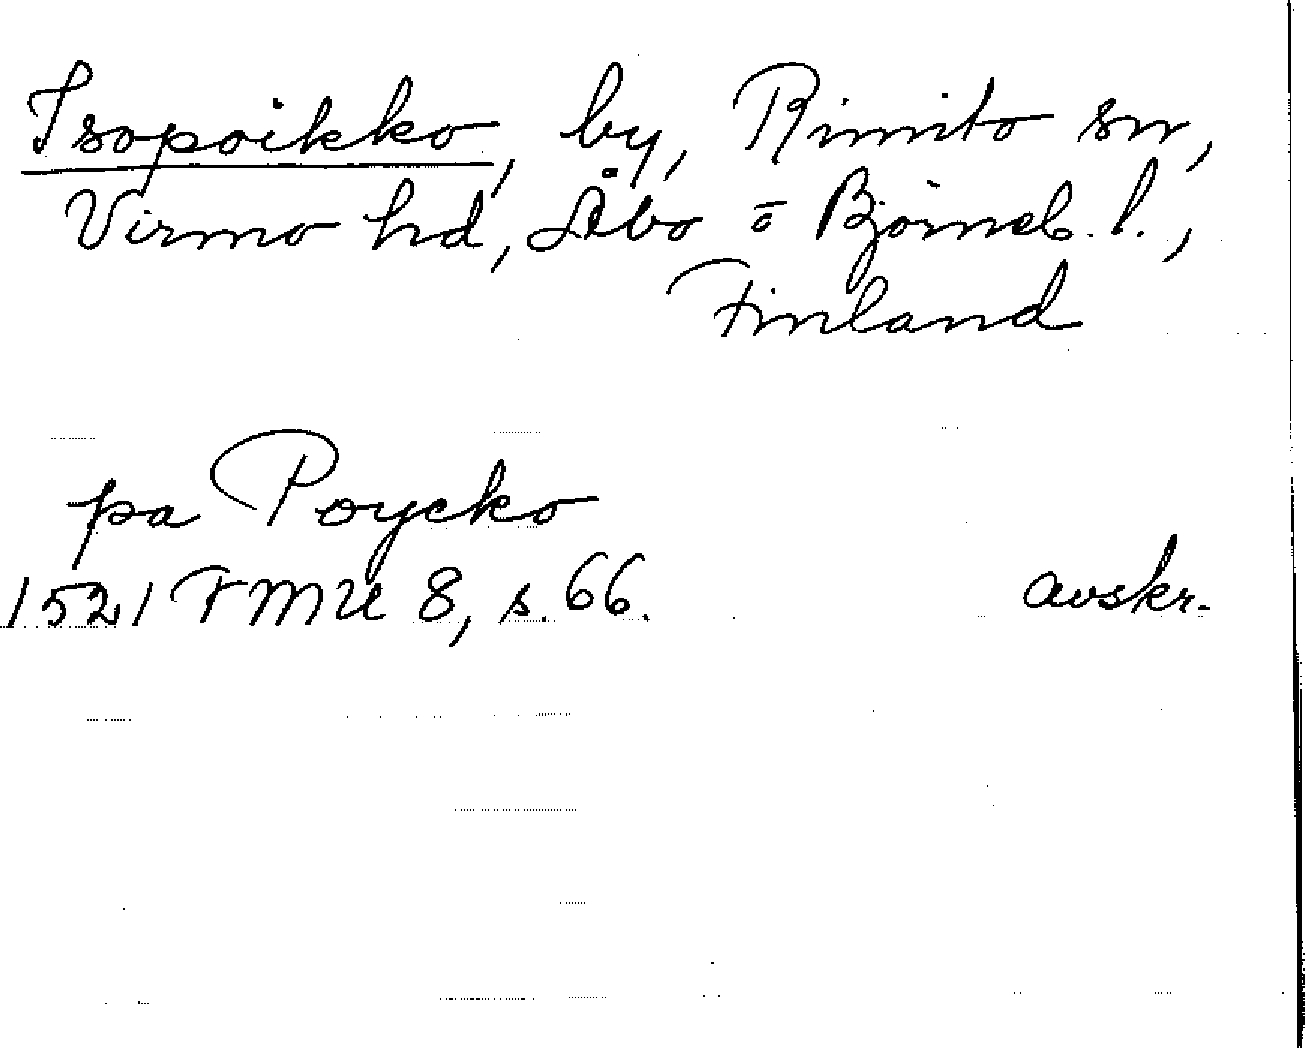 Isopoikko, by, Rimito sn,
Virmo hd, Åbo o Björneb. l.,
Finland
pa Poycko
1521 FMU 8, s. 66.
avskr.